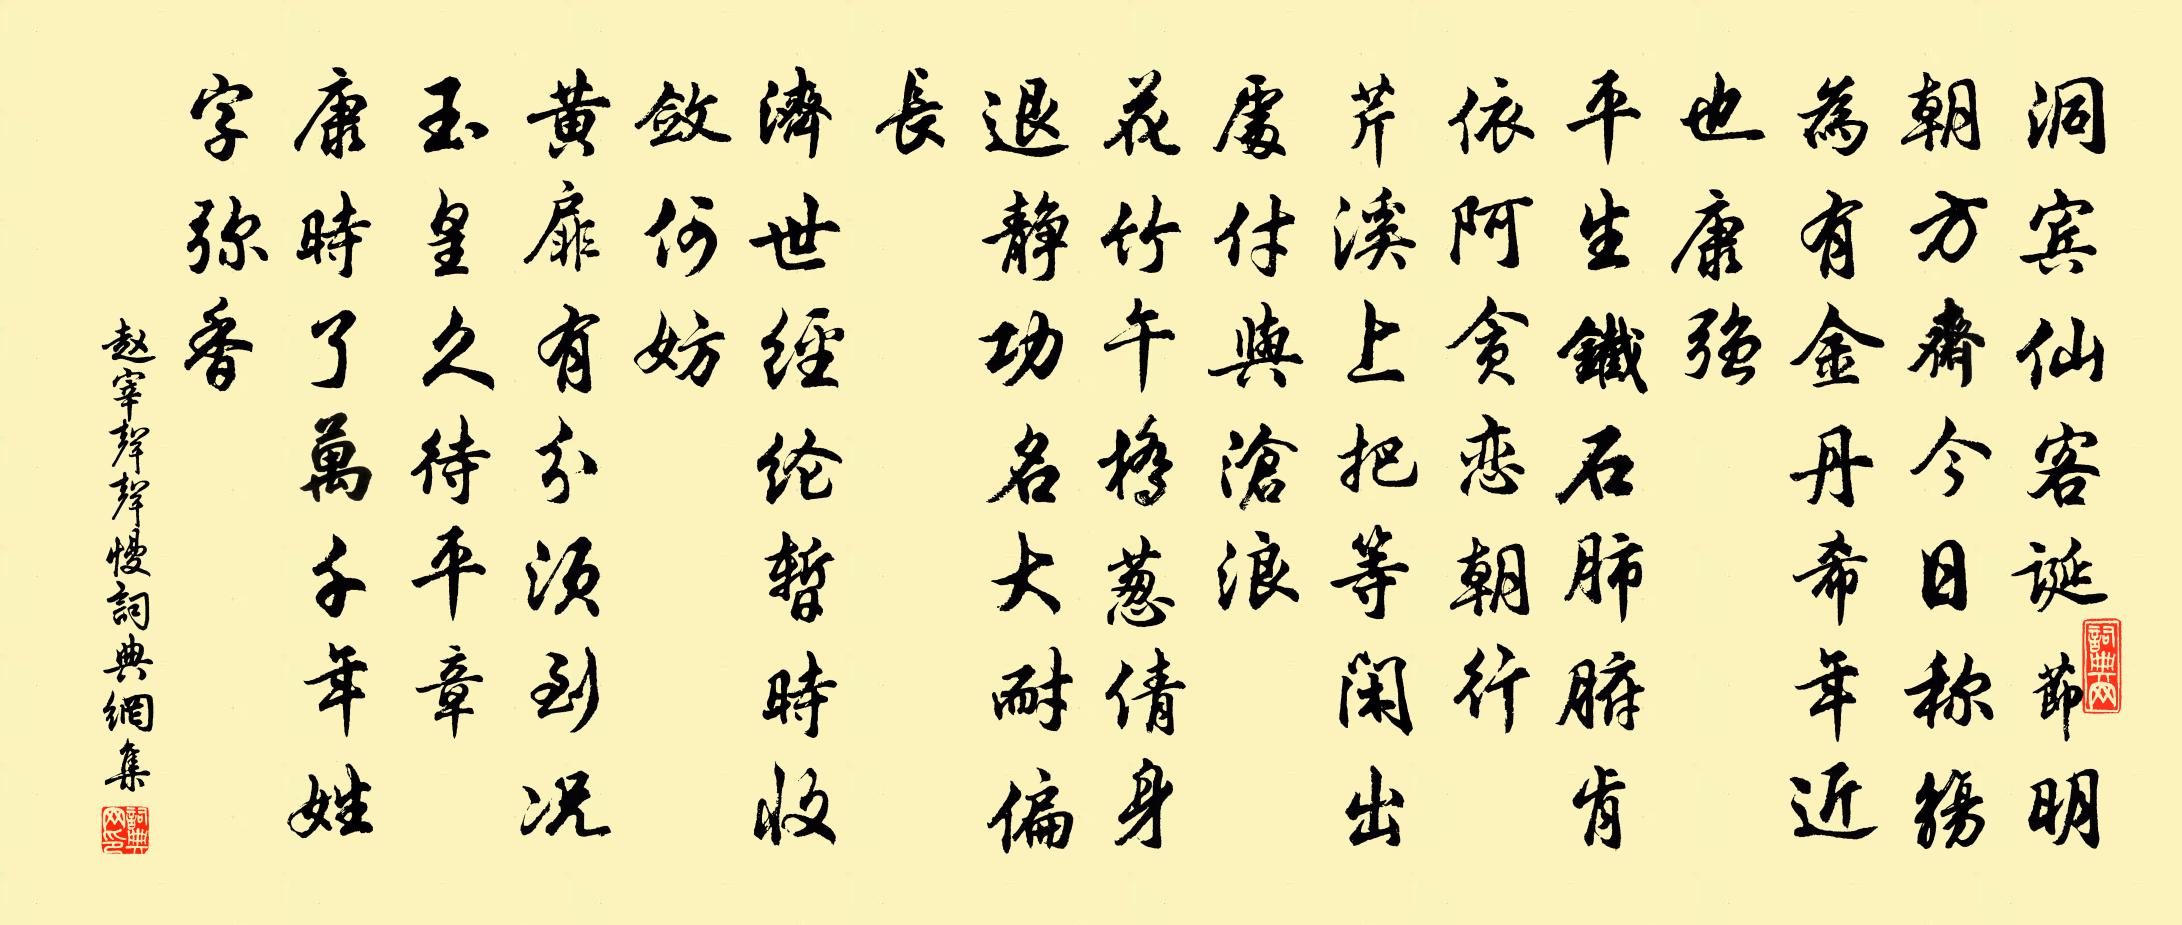 洞宾仙客诞節明
朝方齊今日称觴
為有金丹希年近
也康强
平生鐵石肺腑肯
依阿贪恋朝行
芹溪上把等闲出
處付與滄浪
花竹午橋葱倩身
退静功名大耐偏
長
濟世經纶暂時收
斂何妨
黄扉有分须到况
玉皇久待平章
康時了萬千年姓
字弥香
赵宰聲聲慢詞典網集
詞典网
詞典网印